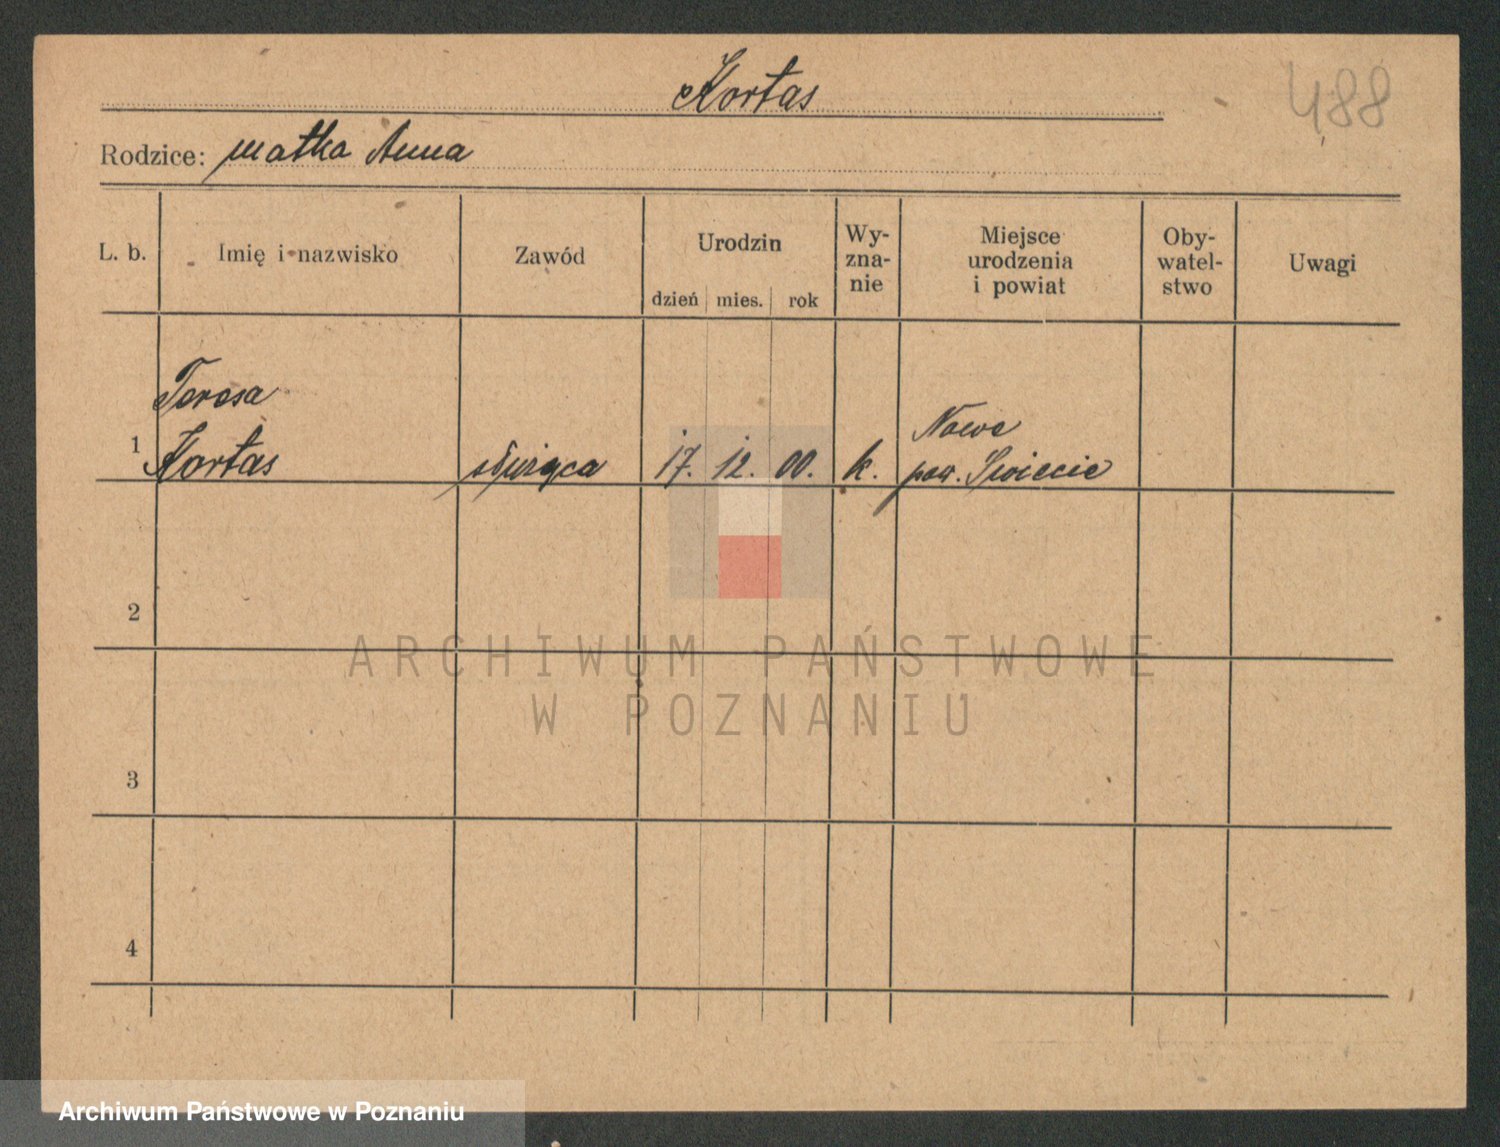 Kortas
488
Rodzice: matka Anna
L. b.
Imię i nazwisko
Zawód
Urodzin
dzień mies. rok
Wy-
zna-
nie
Miejsce
urodzenia
i powiat
Oby-
watel-
stwo
Uwagi
Teresa
1 Kortas służąca 17. 12. 00. k.
Nowe
pow. Świecie
2
3
4
ARCHIWUM PAŃSTWOWE
W POZNANIU
Archiwum Państwowe w Poznaniu